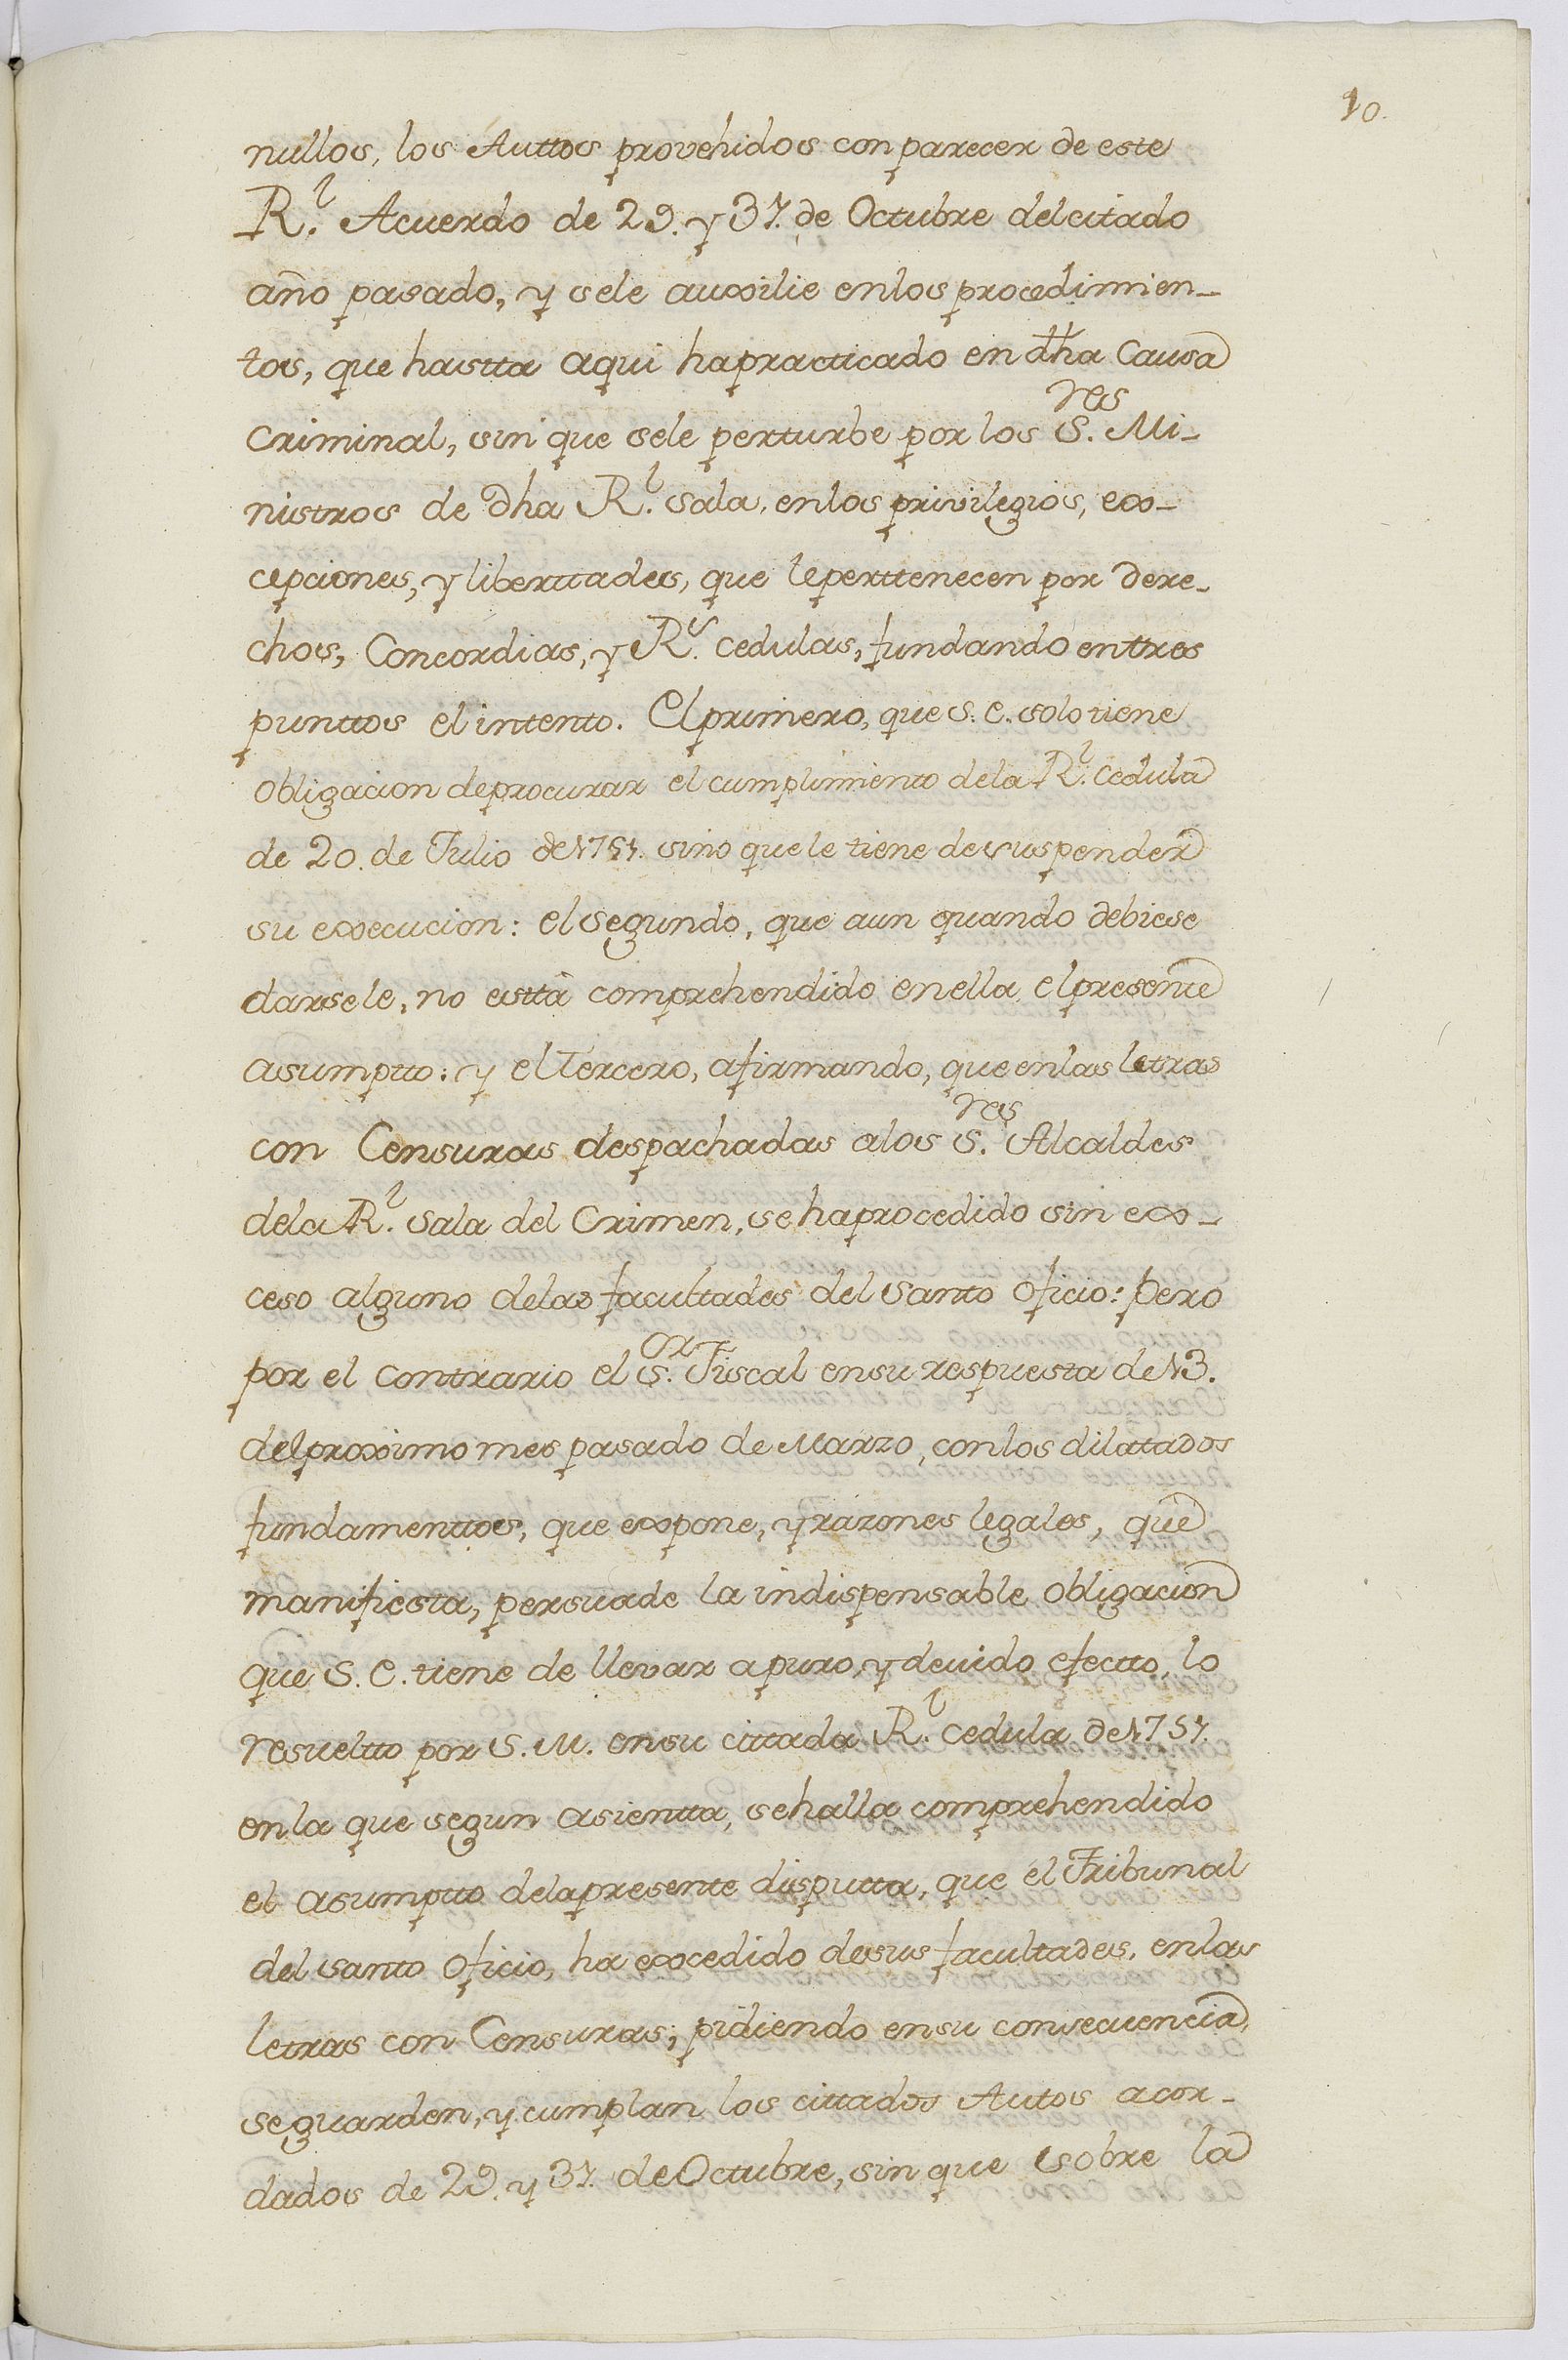 10.
nullos, los Auttos provehidos con parecer de este
R.l Acuerdo de 29. y 31. de Octubre del citado
año pasado, y sele auxilie enlos procedimien-
tos, que hastta aqui hapracticado en dha Causa
Criminal, sin que sele perturbe por los S.res Mi-
nistros de dha R.l Sala, enlos privilegios, ex-
cepciones, y liberttades, que leperttenecen por dere-
chos, Concordias, y R.s cedulas, fundando enttres
punttos el intento. El primero, que S.E. solo tiene
obligacion deprocurar el cumplimiento dela R.l Cedula
de 20. de Julio de 1751. sino que le tiene desuspender
su execucion: el segundo, que aun quando debiese
darsele, no está comprehendido enella, elpresente
asumptto: y el Tercero, afirmando, que enlas letras
con Censuras despachadas alos S.res Alcaldes
dela R.l Sala del Crimen, se haprocedido sin ex-
ceso alguno delas facultades del Santo Oficio: Pero
por el contrario el S.or Fiscal ensu respuesta de 13.
delproximo mes pasado de Marzo, conlos dilatados
fundamenttos, que expone, y razones legales, que
manifiesta, persuade la indispensable obligacion
que S.E. tiene de llevar apuro, y devido efectto, lo
resueltto por S.M. ensu cittada R.l cedula de 1751.
enla que segun asientta, sehalla comprehendido
el asumptto delapresente disputta, que el Tribunal
del Santo Oficio, ha excedido desus facultades, enlas
letras con Censuras; pidiendo ensu consecuencia,
seguarden, y cumplan los cittados Autos acor-
dados de 29. y 31. de Octubre, sin que sobre la